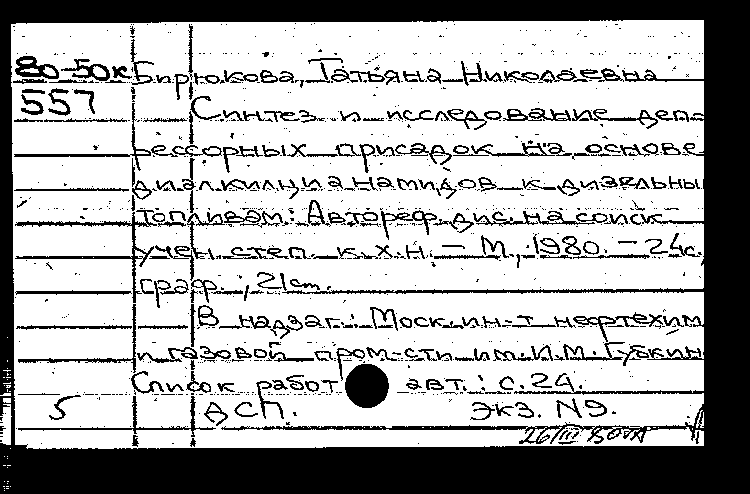 80-50к Бирюкова, Татьяна Николаевна
557 Синтез и исследование деп-
рессорных присадок на основе
диалкилцианамидов к дизельны
топливам: Автореф. дис. на соиск
учен. степ. к.х.н. — М., 1980. — 24с.
граф.; 21см.
В надзаг.: Моск. ин-т нефтехим
и газовой пром-сти им. И.М. Губкин
Список работ авт.: с.24.
5 ДСП. Экз. N9.
26/III 80